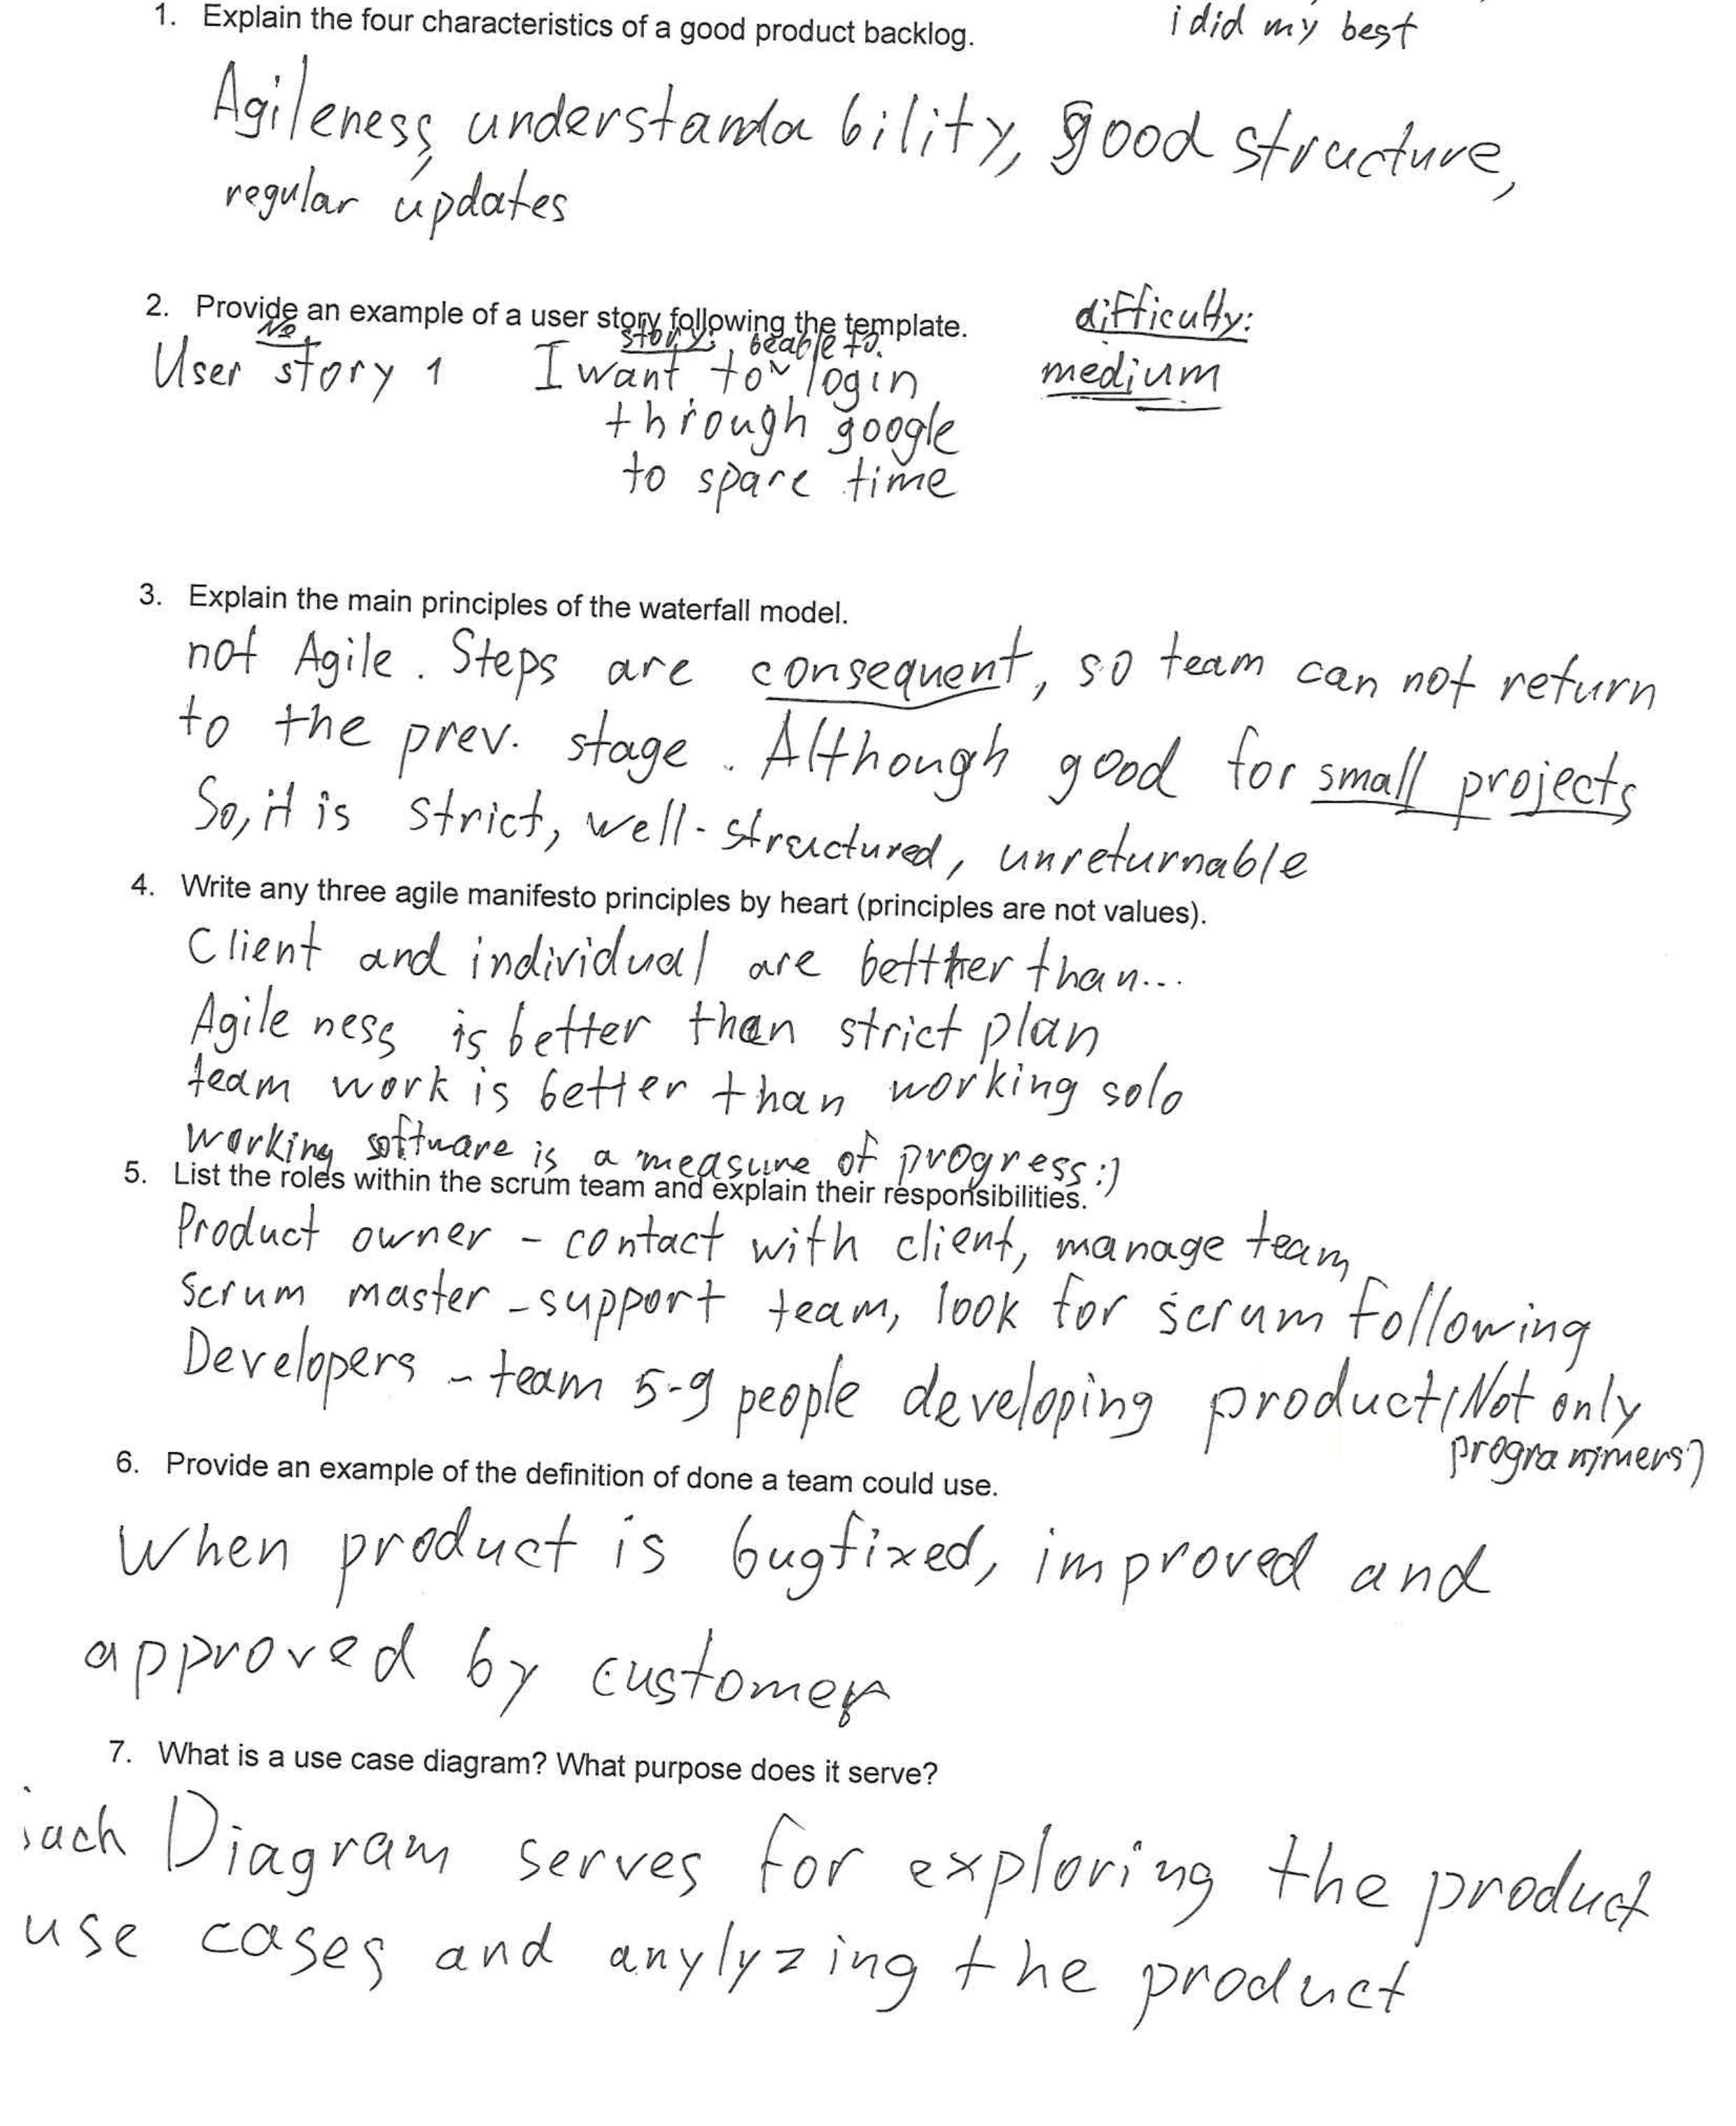 i did my best
1. Explain the four characteristics of a good product backlog.
Agileness, understandability, good structure,
regular updates
2. Provide an example of a user story following the template.
difficulty:
medium
No story: be able to
User story 1 I want to login
through google
to spare time
3. Explain the main principles of the waterfall model.
not Agile. Steps are consequent, so team can not return
to the prev. stage. Although good for small projects
So, it is strict, well-structured, unreturnable
4. Write any three agile manifesto principles by heart (principles are not values).
Client and individual are bettter than...
Agileness is better than strict plan
team work is better than working solo
working software is a measure of progress:)
5. List the roles within the scrum team and explain their responsibilities.
Product owner - contact with client, manage team
Scrum master - support team, look for scrum following
Developers - team 5-9 people developing product (Not only
programmers)
6. Provide an example of the definition of done a team could use.
When product is bugfixed, improved and
approved by customer
7. What is a use case diagram? What purpose does it serve?
such Diagram serves for exploring the product
use cases and anylyzing the product